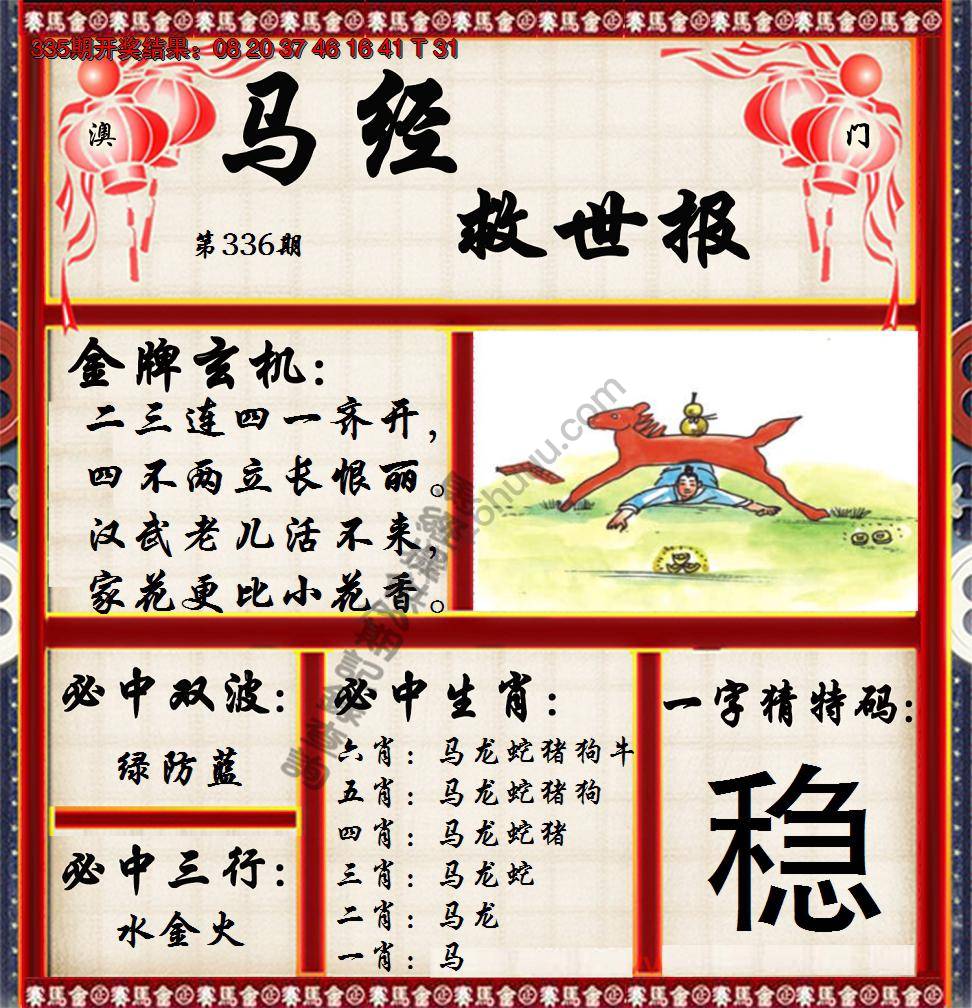 335期开奖结果：08 20 37 46 16 41 T 31
澳
门
马经
救世报
第336期
金牌玄机：
二三连四一齐开，
四不两立长恨丽。
汉武老儿活不来，
家花更比小花香。
必中双波：
绿防蓝
必中三行：
水金火
必中生肖：
六肖：马龙蛇猪狗牛
五肖：马龙蛇猪狗
四肖：马龙蛇猪
三肖：马龙蛇
二肖：马龙
一肖：马
一字猜特码：
稳